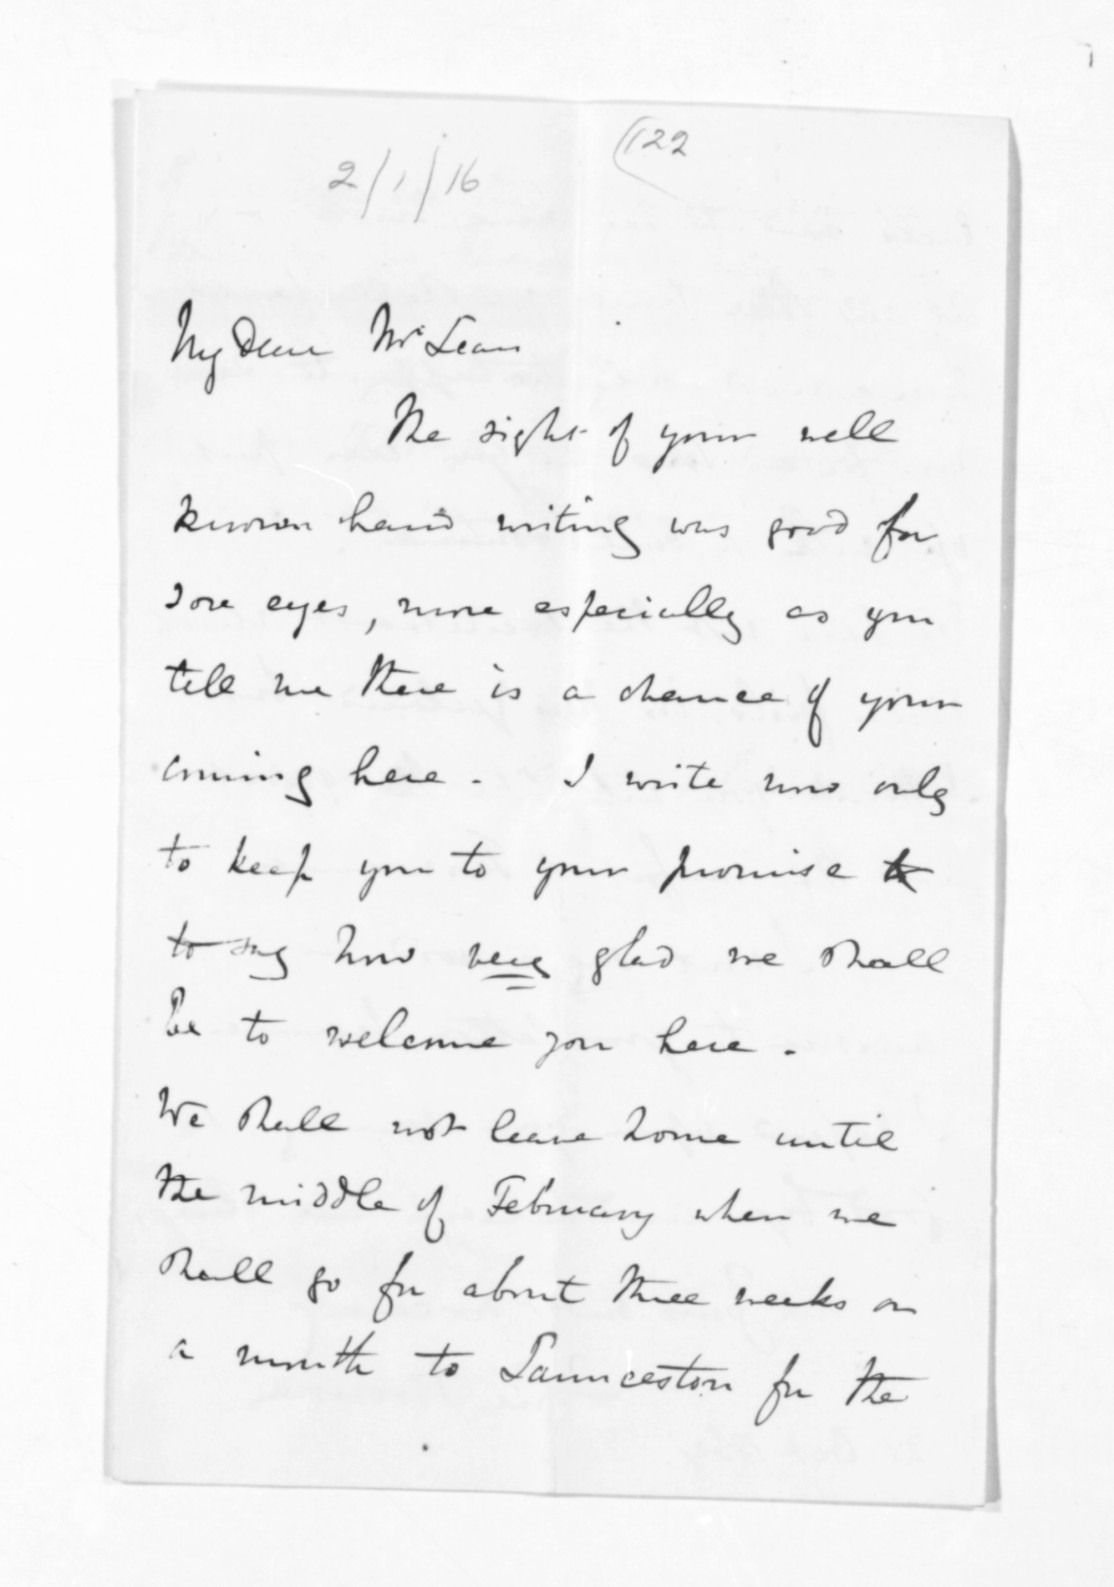 2/1/16
122
My Dear McLean
The sight of your well
known hand writing was good for
sore eyes, more especially as you
tell me there is a chance of your
coming here - I write now only
to keep you to your promise to
to say how very glad we shall
be to welcome you here.
We shall not leave home until
the middle of February when we
shall go for about three weeks or
a month to Launceston for the